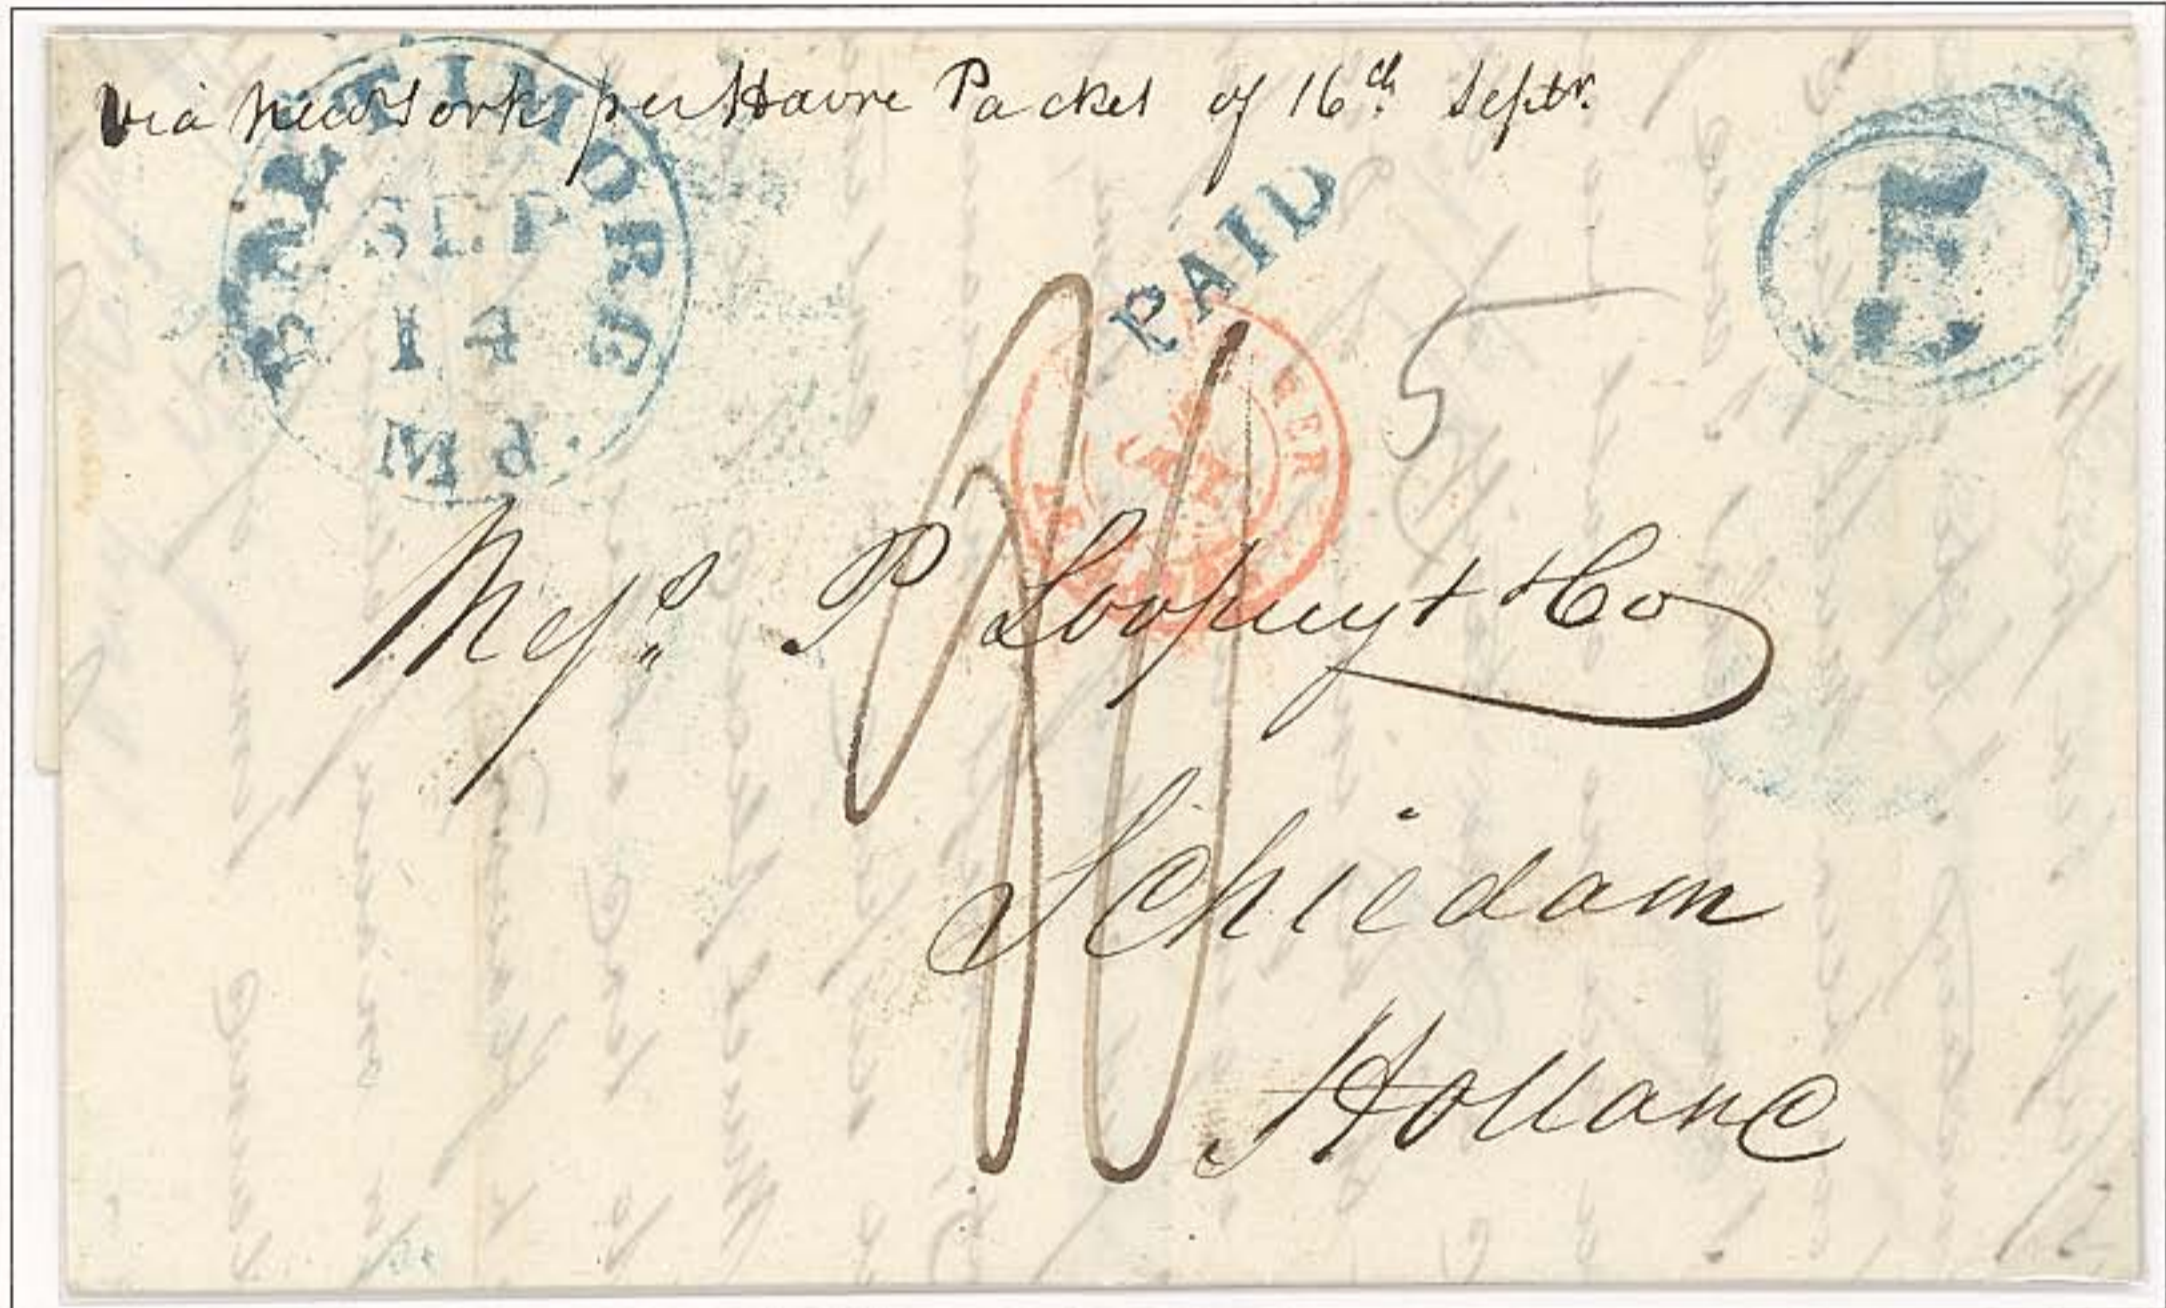 via New York per Havre Packet of 16th Septr.
BALTIMORE
SEP
14
Md.
PAID
5
5
Mess.s P Loopuyt & Co
Schiedam
Holland